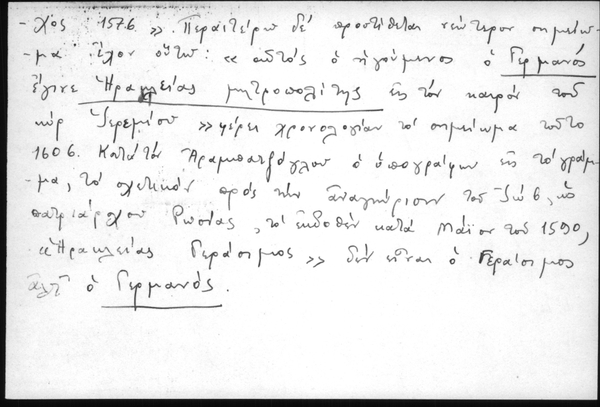 -χος 1576 ». Περαιτέρω δέ προστίθεται νεώτερον σημείω-
-μα ἔχον οὕτω: « αὐτός ὁ ἡγούμενος ὁ Γερμανός
ἔγινε Ἡρακλείας μητροπολίτης εἰς τόν καιρόν τοῦ
κύρ Ἱερεμίου » φέρει χρονολογίαν τό σημείωμα τοῦτο
1606. Κατά τόν Ἀραμπατζόγλου ὁ ὑπογράψων εἰς τό γράμ-
-μα, τό σχετικόν πρός τήν ἀναγνώρισιν τοῦ Ἰώβ, ὡς
πατριάρχου Ρωσίας, τό ἐκδοθέν κατά Μάϊον τοῦ 1590,
« Ἡρακλείας Γεράσιμος » δέν εἶναι ὁ Γεράσιμος
ἀλλ' ὁ Γερμανός.